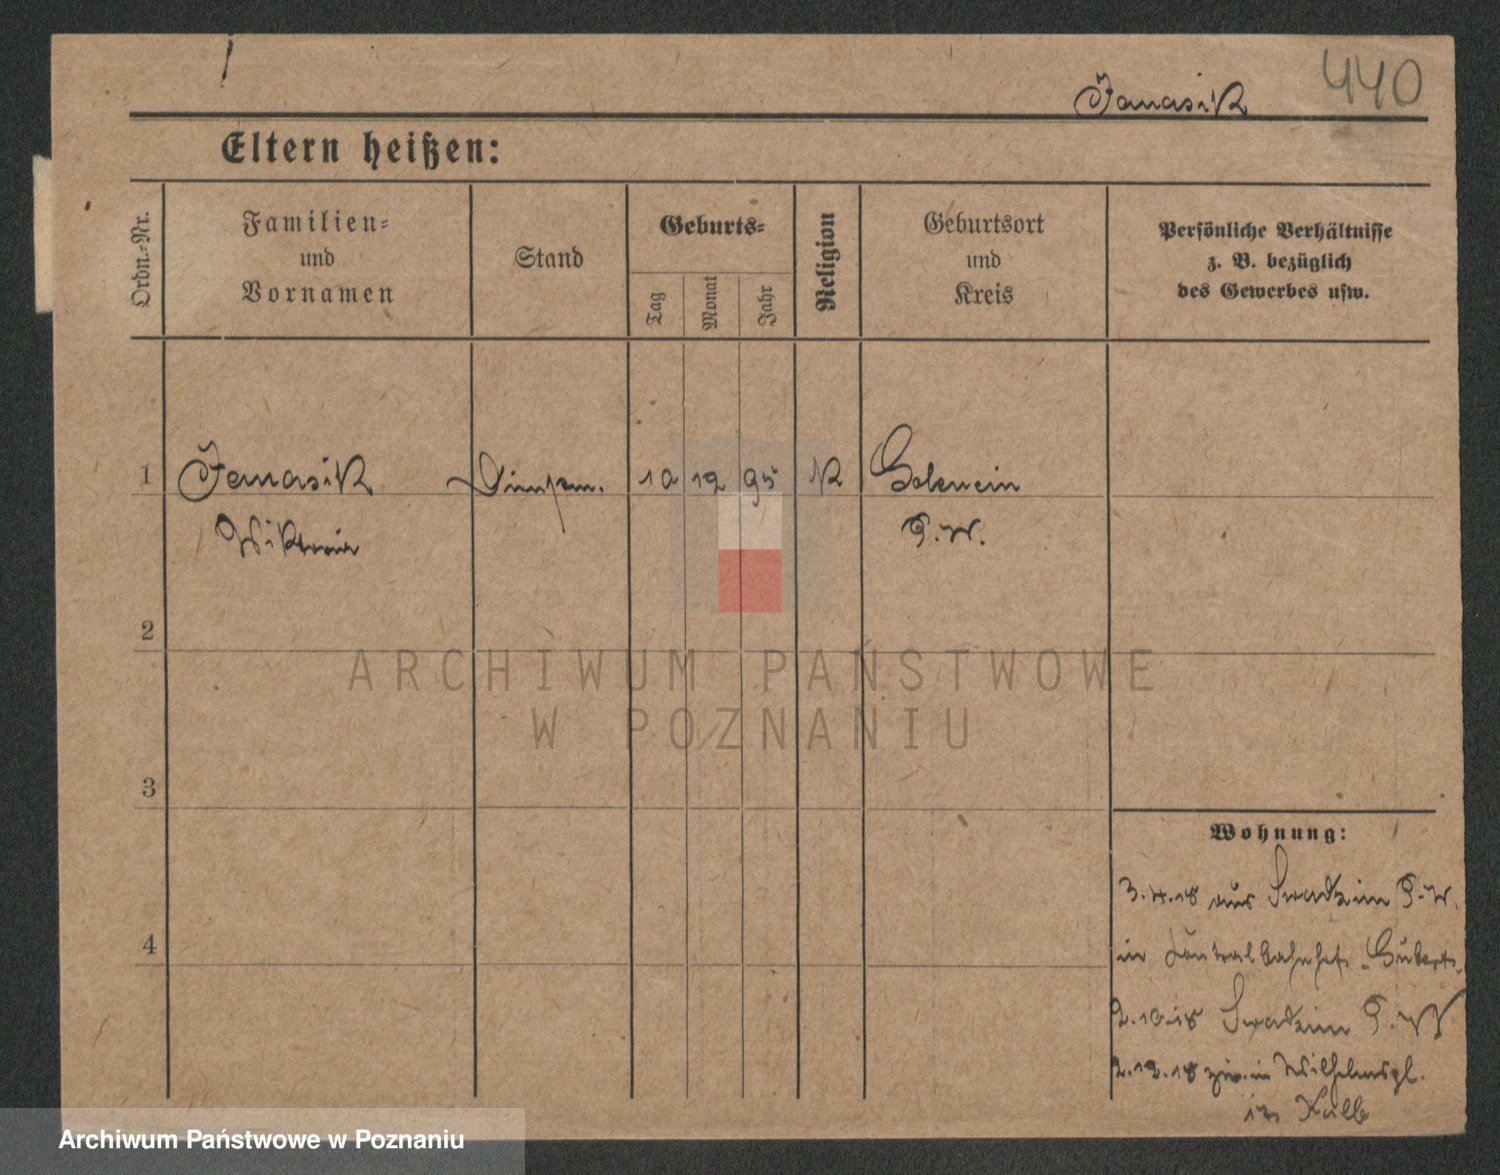 440
Janasik
Eltern heißen:
Ordn.-Nr.
Familien-
und
Vornamen
Stand
Geburts-
Tag
Monat
Jahr
Religion
Geburtsort
und
Kreis
Persönliche Verhältnisse
z. B. bezüglich
des Gewerbes usw.
1
Janasik
10 12 95
K
Golencin
Wiktoria
P.W.
2
ARCHIWUM PAŃSTWOWE
W POZNANIU
3
Wohnung:
3.4.18 aus Swadzim P.W.
4
in Zentralbahnhof
2.10.18 Swadzim P.W
2.12.18 Wilhelmspl.
Archiwum Państwowe w Poznaniu